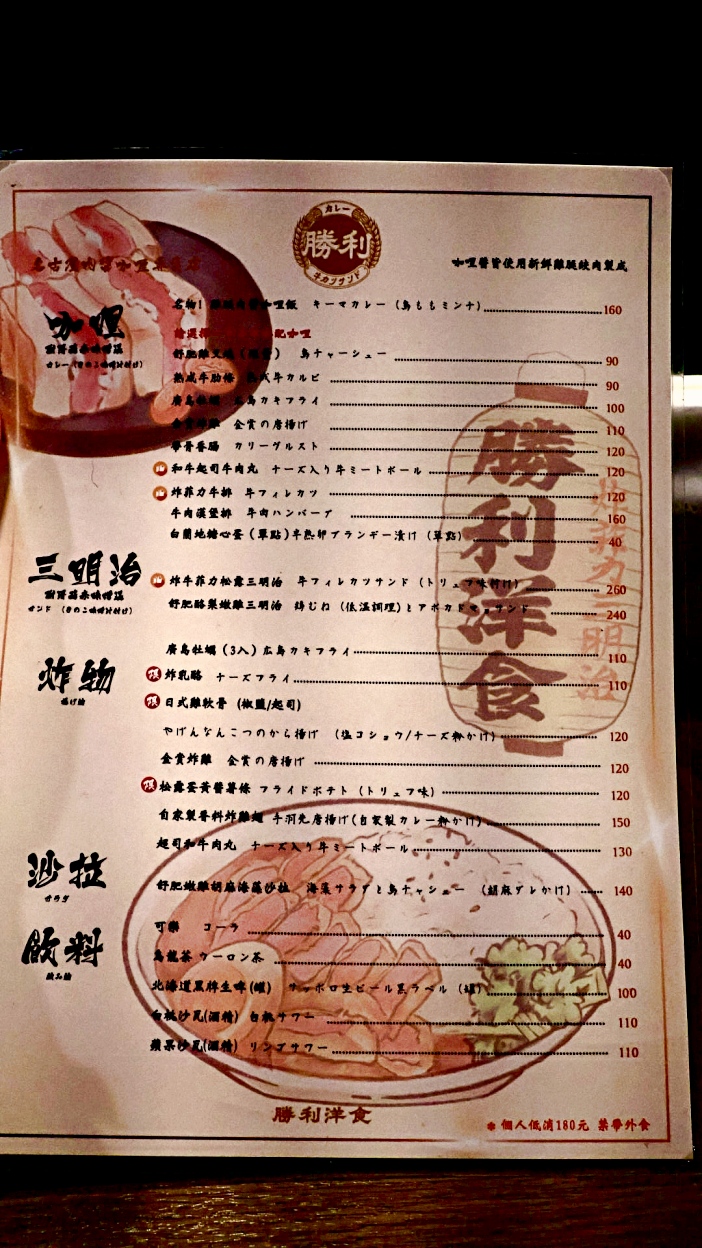 カレー
勝利
牛カツサンド
咖哩醬皆使用新鮮雞腿絞肉製成
咖哩
カレー（きのこ味噌汁付け）
名物! 雞腿肉醬咖哩飯 キーマカレー (鳥ももミンチ) 160
配咖哩
舒肥雞叉燒 鳥チャーシュー 90
熟成牛肋條 熟成牛カルビ 90
廣島牡蠣 広島カキフライ 100
金賞炸雞 金賞の唐揚げ 110
學骨香腸 カリーヴルスト 120
和牛起司牛肉丸 チーズ入り牛ミートボール 120
炸菲力牛排 牛フィレカツ 120
牛肉漢堡排 牛肉ハンバーグ 160
白蘭地糖心蛋 (單點) 半熟卵ブランデー漬け (単點) 40
三明治
サンド (きのこ味噌汁付け)
炸牛菲力松露三明治 牛フィレカツサンド (トリュフ味付け) 260
舒肥酪梨嫩雞三明治 鶏むね (低温調理) とアボカド サンド 240
炸物
揚げ物
廣島牡蠣 (3入) 広島カキフライ 110
炸乳酪 チーズフライ 110
日式雞軟骨 (椒鹽/起司)
やげんなんこつのから揚げ (塩コショウ/チーズ粉かけ) 120
金賞炸雞 金賞の唐揚げ 120
松露蛋黃醬薯條 フライドポテト (トリュフ味) 120
自家製香料炸雞翅 手羽先唐揚げ(自家製カレー粉かけ) 150
起司和牛肉丸 チーズ入り牛ミートボール 130
沙拉
サラダ
舒肥嫩雞胡麻海藻沙拉 海藻サラダと鳥チャシュー (胡麻ダレかけ) 140
飲料
飲み物
可樂 コーラ 40
烏龍茶 ウーロン茶 40
北海道黑牌生啤(罐) サッポロ生ビール黒ラベル (罐) 100
白桃沙瓦(酒精) 白桃サワー 110
蘋果沙瓦(酒精) リンゴサワー 110
勝利洋食
炸菲力三明治
勝利洋食
※個人低消180元 禁帶外食